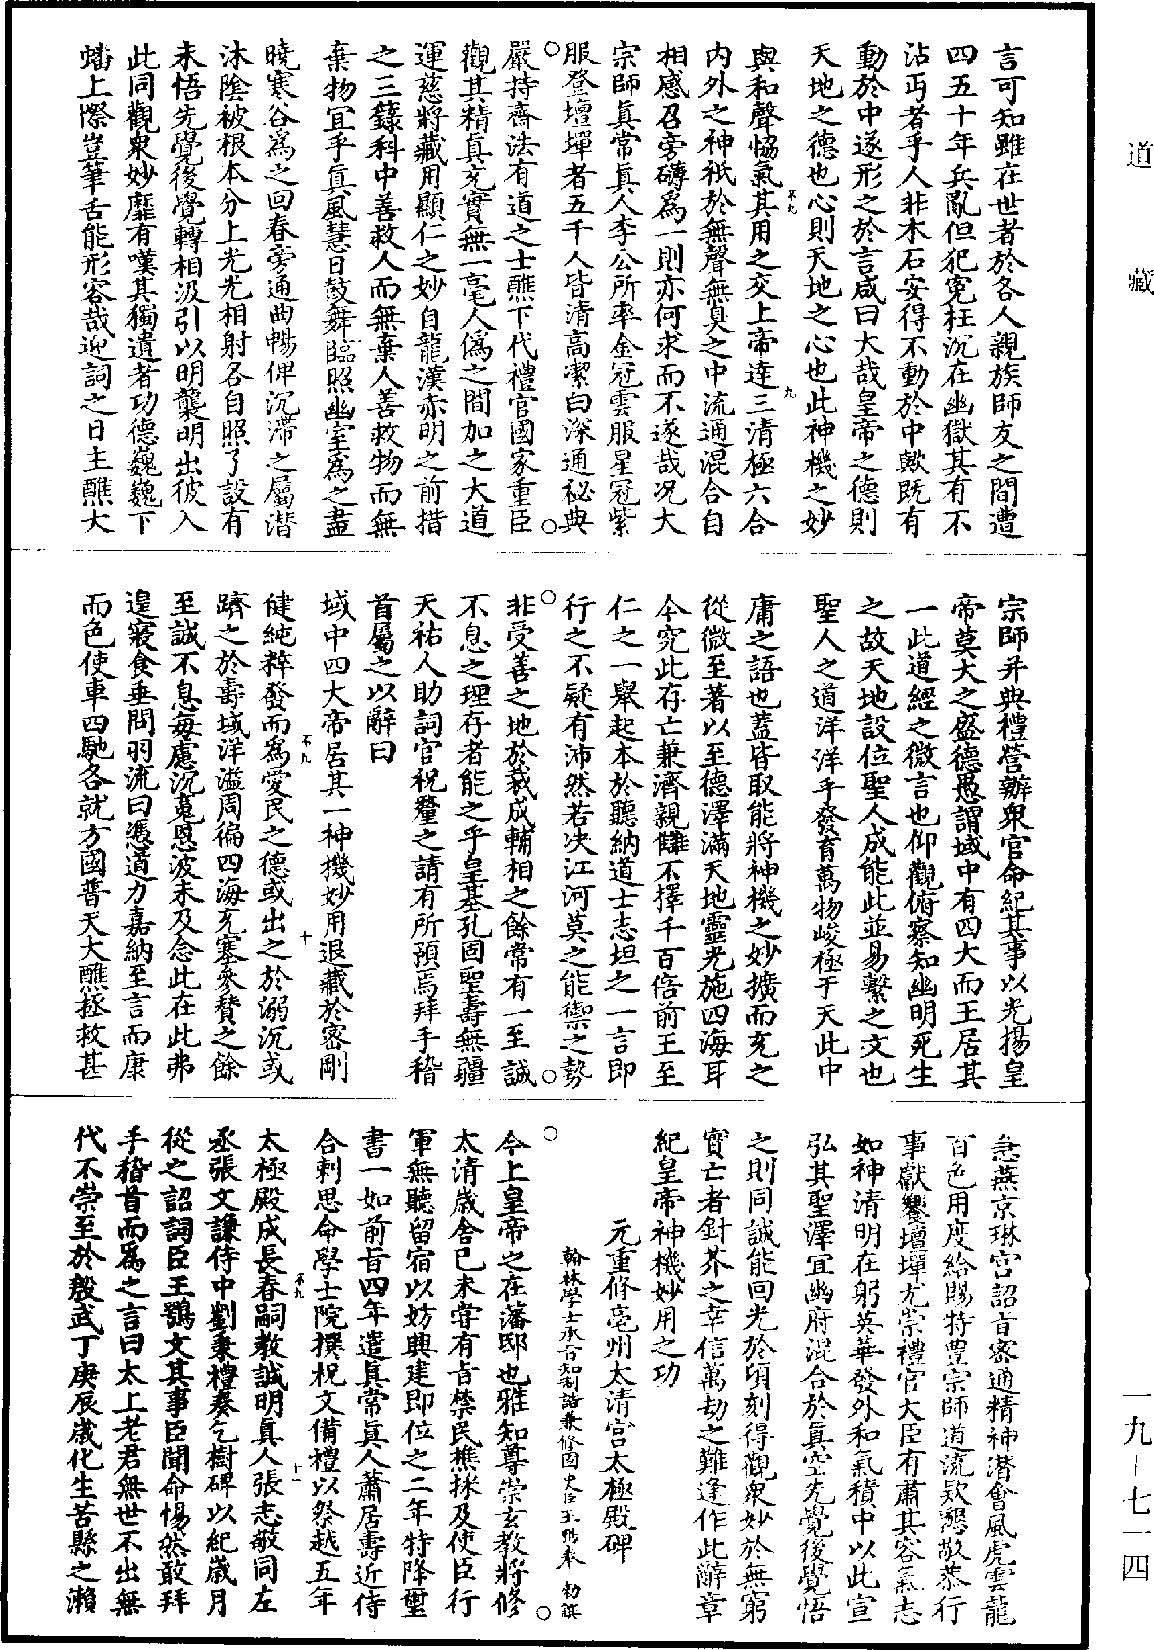 道藏
一九—七一四
言可知雖在世者於各人親族師友之間遭
四五十年兵亂但犯冤枉沉在幽獄其有不
沾丐者乎人非木石安得不動於中歟既有
動於中遂形之於言咸曰大哉皇帝之德則
天地之德也心則天地之心也此神機之妙
與和聲恊氣其用之交上帝達三清極六合
內外之神祇於無聲無臭之中流通混合自
相感召旁礴為一則亦何求而不遂哉况大
宗師真常真人李公所率金冠雲服星冠紫
服登壇墠者五千人皆清高潔白深通秘典
嚴持齋法有道之士醮下代禮官國家重臣
觀其精真充實無一毫人偽之間加之大道
運慈將藏用顯仁之妙自龍漢赤明之前措
之三籙科中善救人而無棄人善救物而無
棄物冝乎真風慧日鼓舞臨照幽室為之盡
曉寒谷為之回春旁通曲暢俾沉滯之屬潛
沐陰被根本分上光光相射各自照了設有
未悟先覺後覺轉相汲引以明襲明出彼入
此同觀衆妙靡有嘆其獨遺者功德巍巍下
蟠上際豈筆舌能形容哉迎詞之日主醮大
宗師并典禮營辦衆官命紀其事以光揚皇
帝莫大之盛德愚謂域中有四大而王居其
一此道經之微言也仰觀俯察知幽明死生
之故天地設位聖人成能此並易繫之文也
聖人之道洋洋乎發育萬物峻極于天此中
庸之語也蓋皆取能將神機之妙擴而充之
從微至著以至德澤滿天地靈光施四海耳
今究此存亡兼濟親讎不擇千百倍前王至
仁之一舉起本於聽納道士志坦之一言即
行之不疑有沛然若决江河莫之能禦之勢
非受善之地於裁成輔相之餘常有一至誠
不息之理存者能之乎皇基孔固聖壽無疆
天祐人助詞官祝釐之請有所預焉拜手稽
首屬之以辭曰
域中四大帝居其一神機妙用退藏於密剛
健純粹發而為愛民之德或出之於溺沉或
躋之於壽域洋溢周徧四海充塞參賛之餘
至誠不息每慮沉冤恩波未及念此在此弗
遑寢食垂問羽流曰憑道力嘉納至言而康
而色使車四馳各就方國普天大醮拯救甚
急燕京琳宫詔旨密通精神潛會風虎雲龍
百色用度給賜特豊宗師道流欵懇敬恭行
事獻饗壇墠尤崇禮官大臣有肅其容氣志
如神清明在躬英華發外和氣積中以此宣
弘其聖澤冝幽府混合於真空先覺後覺悟
之則同誠能回光於頃刻得觀衆妙於無窮
實亡者針芥之幸信萬劫之難逢作此辭章
紀皇帝神機妙用之功
元重修亳州太清宫太極殿碑
翰林學士承旨知制誥兼修國史臣王鶚奉 勑譔
今上皇帝之在藩邸也雅知尊崇玄教將修
太清歲舍已未甞有旨禁民樵採及使臣行
軍無聽留宿以妨興建即位之二年特降璽
書一如前旨四年遣真常真人蕭居壽近侍
合剌思命學士院撰祝文備禮以祭越五年
太極殿成長春嗣教誠明真人張志敬同左
丞張文謙侍中劉秉禮奏乞樹碑以紀歲月
從之詔詞臣王鶚文其事臣聞命惕然敢拜
手稽首而為之言曰太上老君無世不出無
代不崇至於殷武丁庚辰歲化生苦縣之瀨